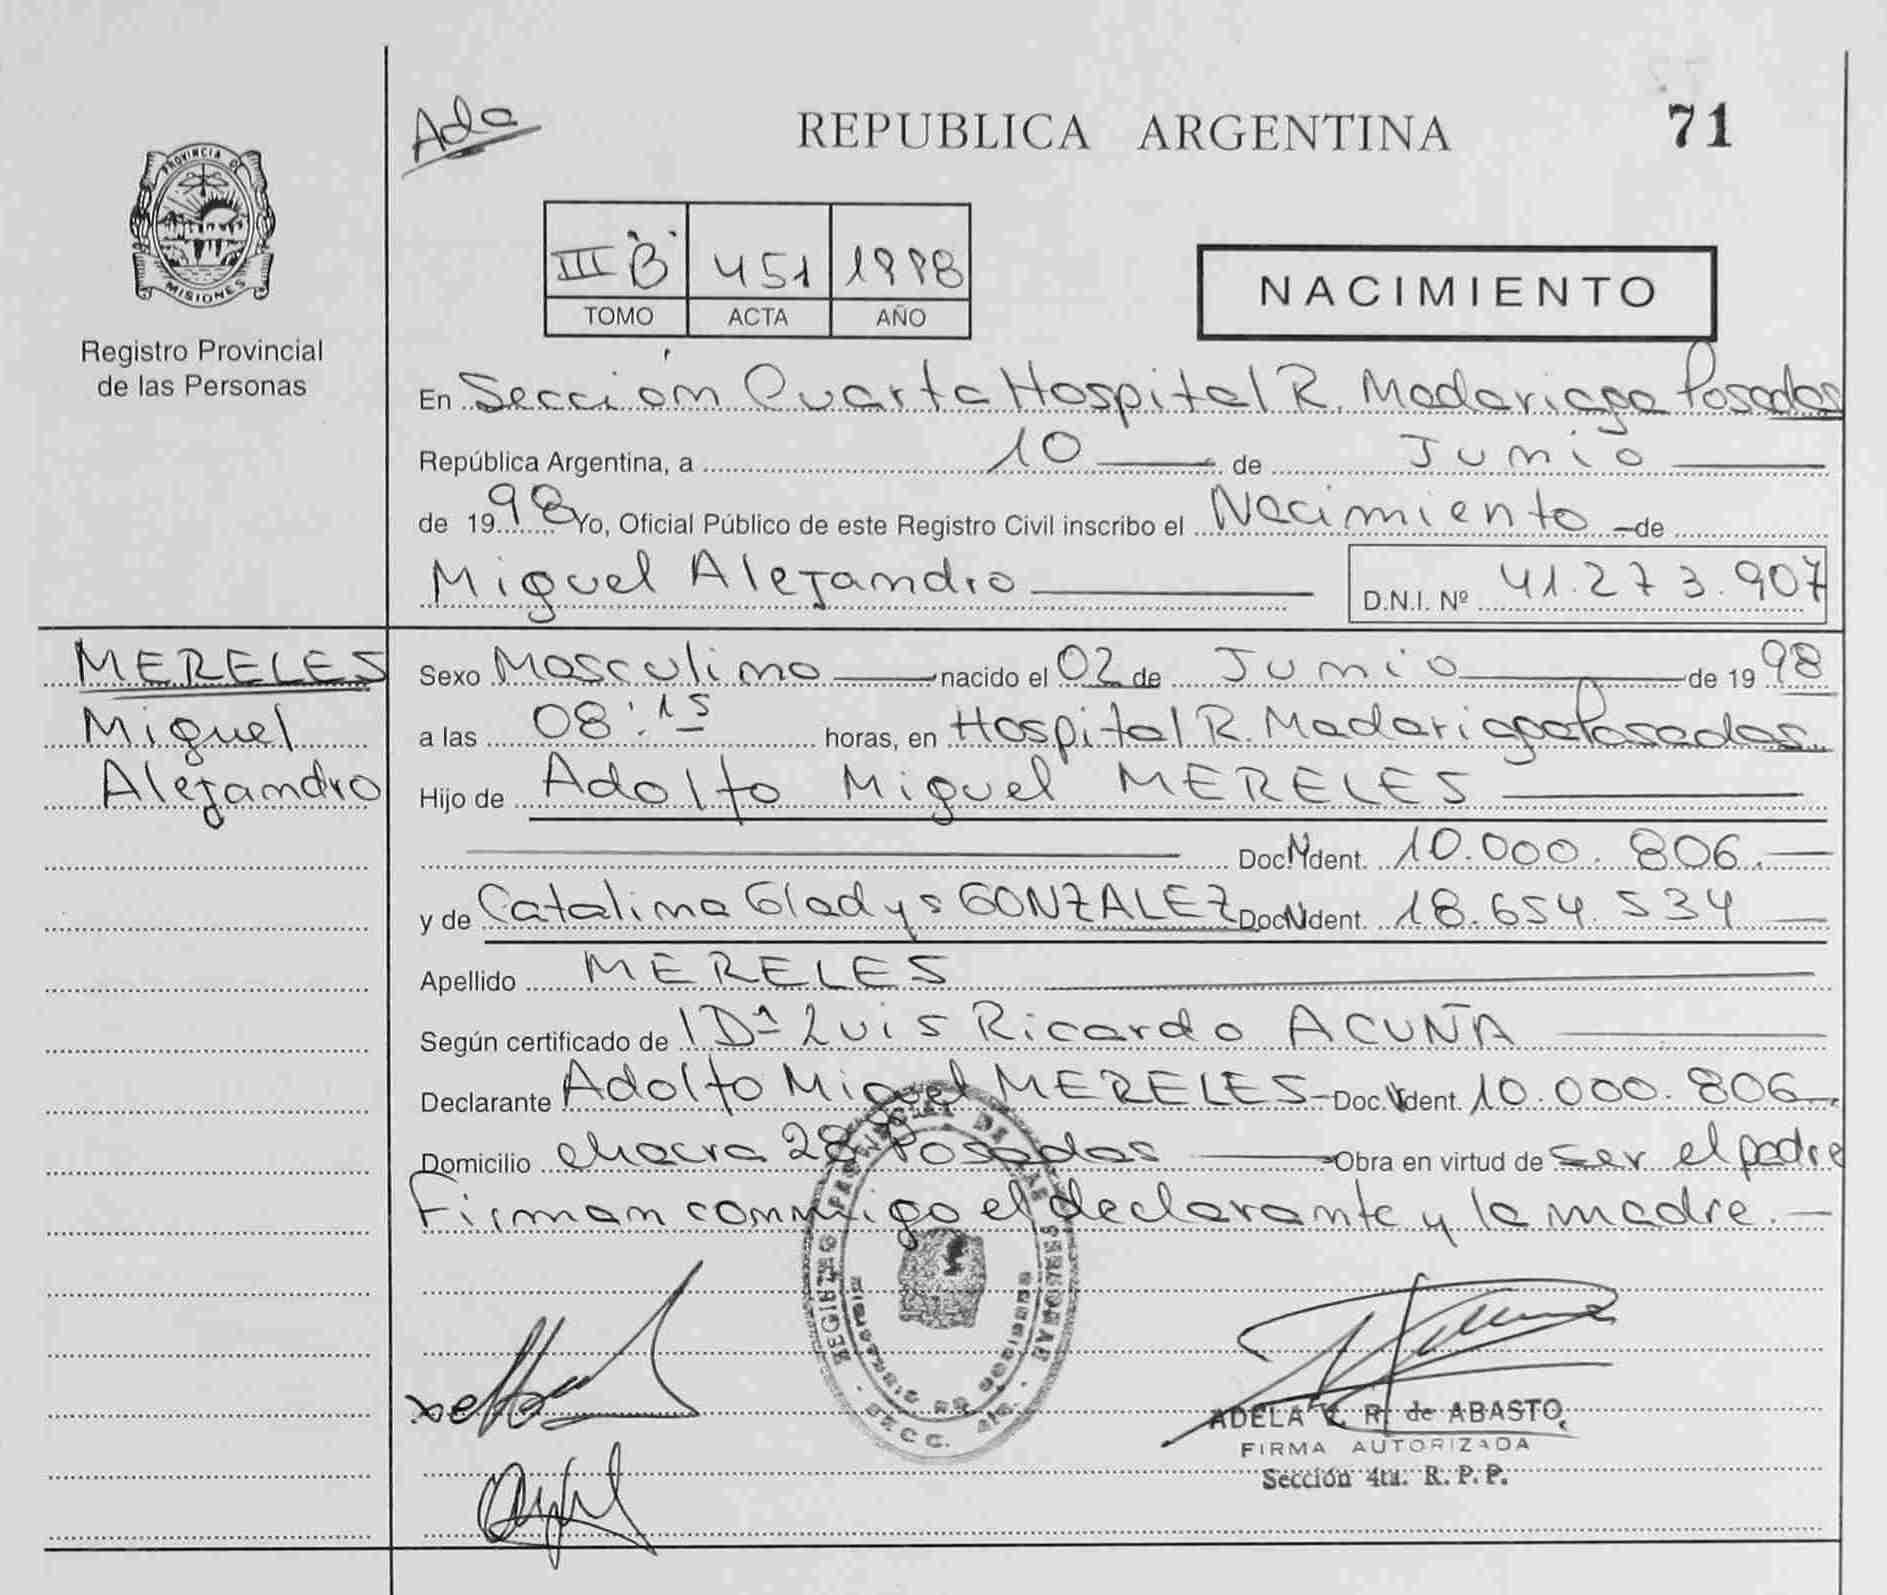 Ada
REPUBLICA ARGENTINA
71
PROVINCIA DE
MISIONES
Registro Provincial
de las Personas
III "B" 451 1998
TOMO ACTA AÑO
NACIMIENTO
En Sección Cuarta Hospital R. Madariaga Posadas
República Argentina, a 10 de Junio
de 1998 Yo, Oficial Público de este Registro Civil inscribo el Nacimiento de
Miguel Alejandro D.N.I. Nº 41.273.907
MERELES
Miguel
Alejandro
Sexo Masculino nacido el 02 de Junio de 1998
a las 08:15 horas, en Hospital R. Madariaga Posadas
Hijo de Adolfo Miguel MERELES
Doc. Ident. 10.000.806.
y de Catalina Gladys GONZALEZ Doc. Ident. 18.654.534
Apellido MERELES
Según certificado de Luis Ricardo ACUÑA
Declarante Adolfo Miguel MERELES Doc. Ident. 10.000.806.
Domicilio chacra 289 Posadas Obra en virtud de ser el padre
Firman conmigo el declarante y la madre.
REGISTRO PROVINCIAL DE LAS PERSONAS
SECC. 4ta.
ADELA R. de ABASTO
FIRMA AUTORIZADA
Sección 4ta. R. P. P.